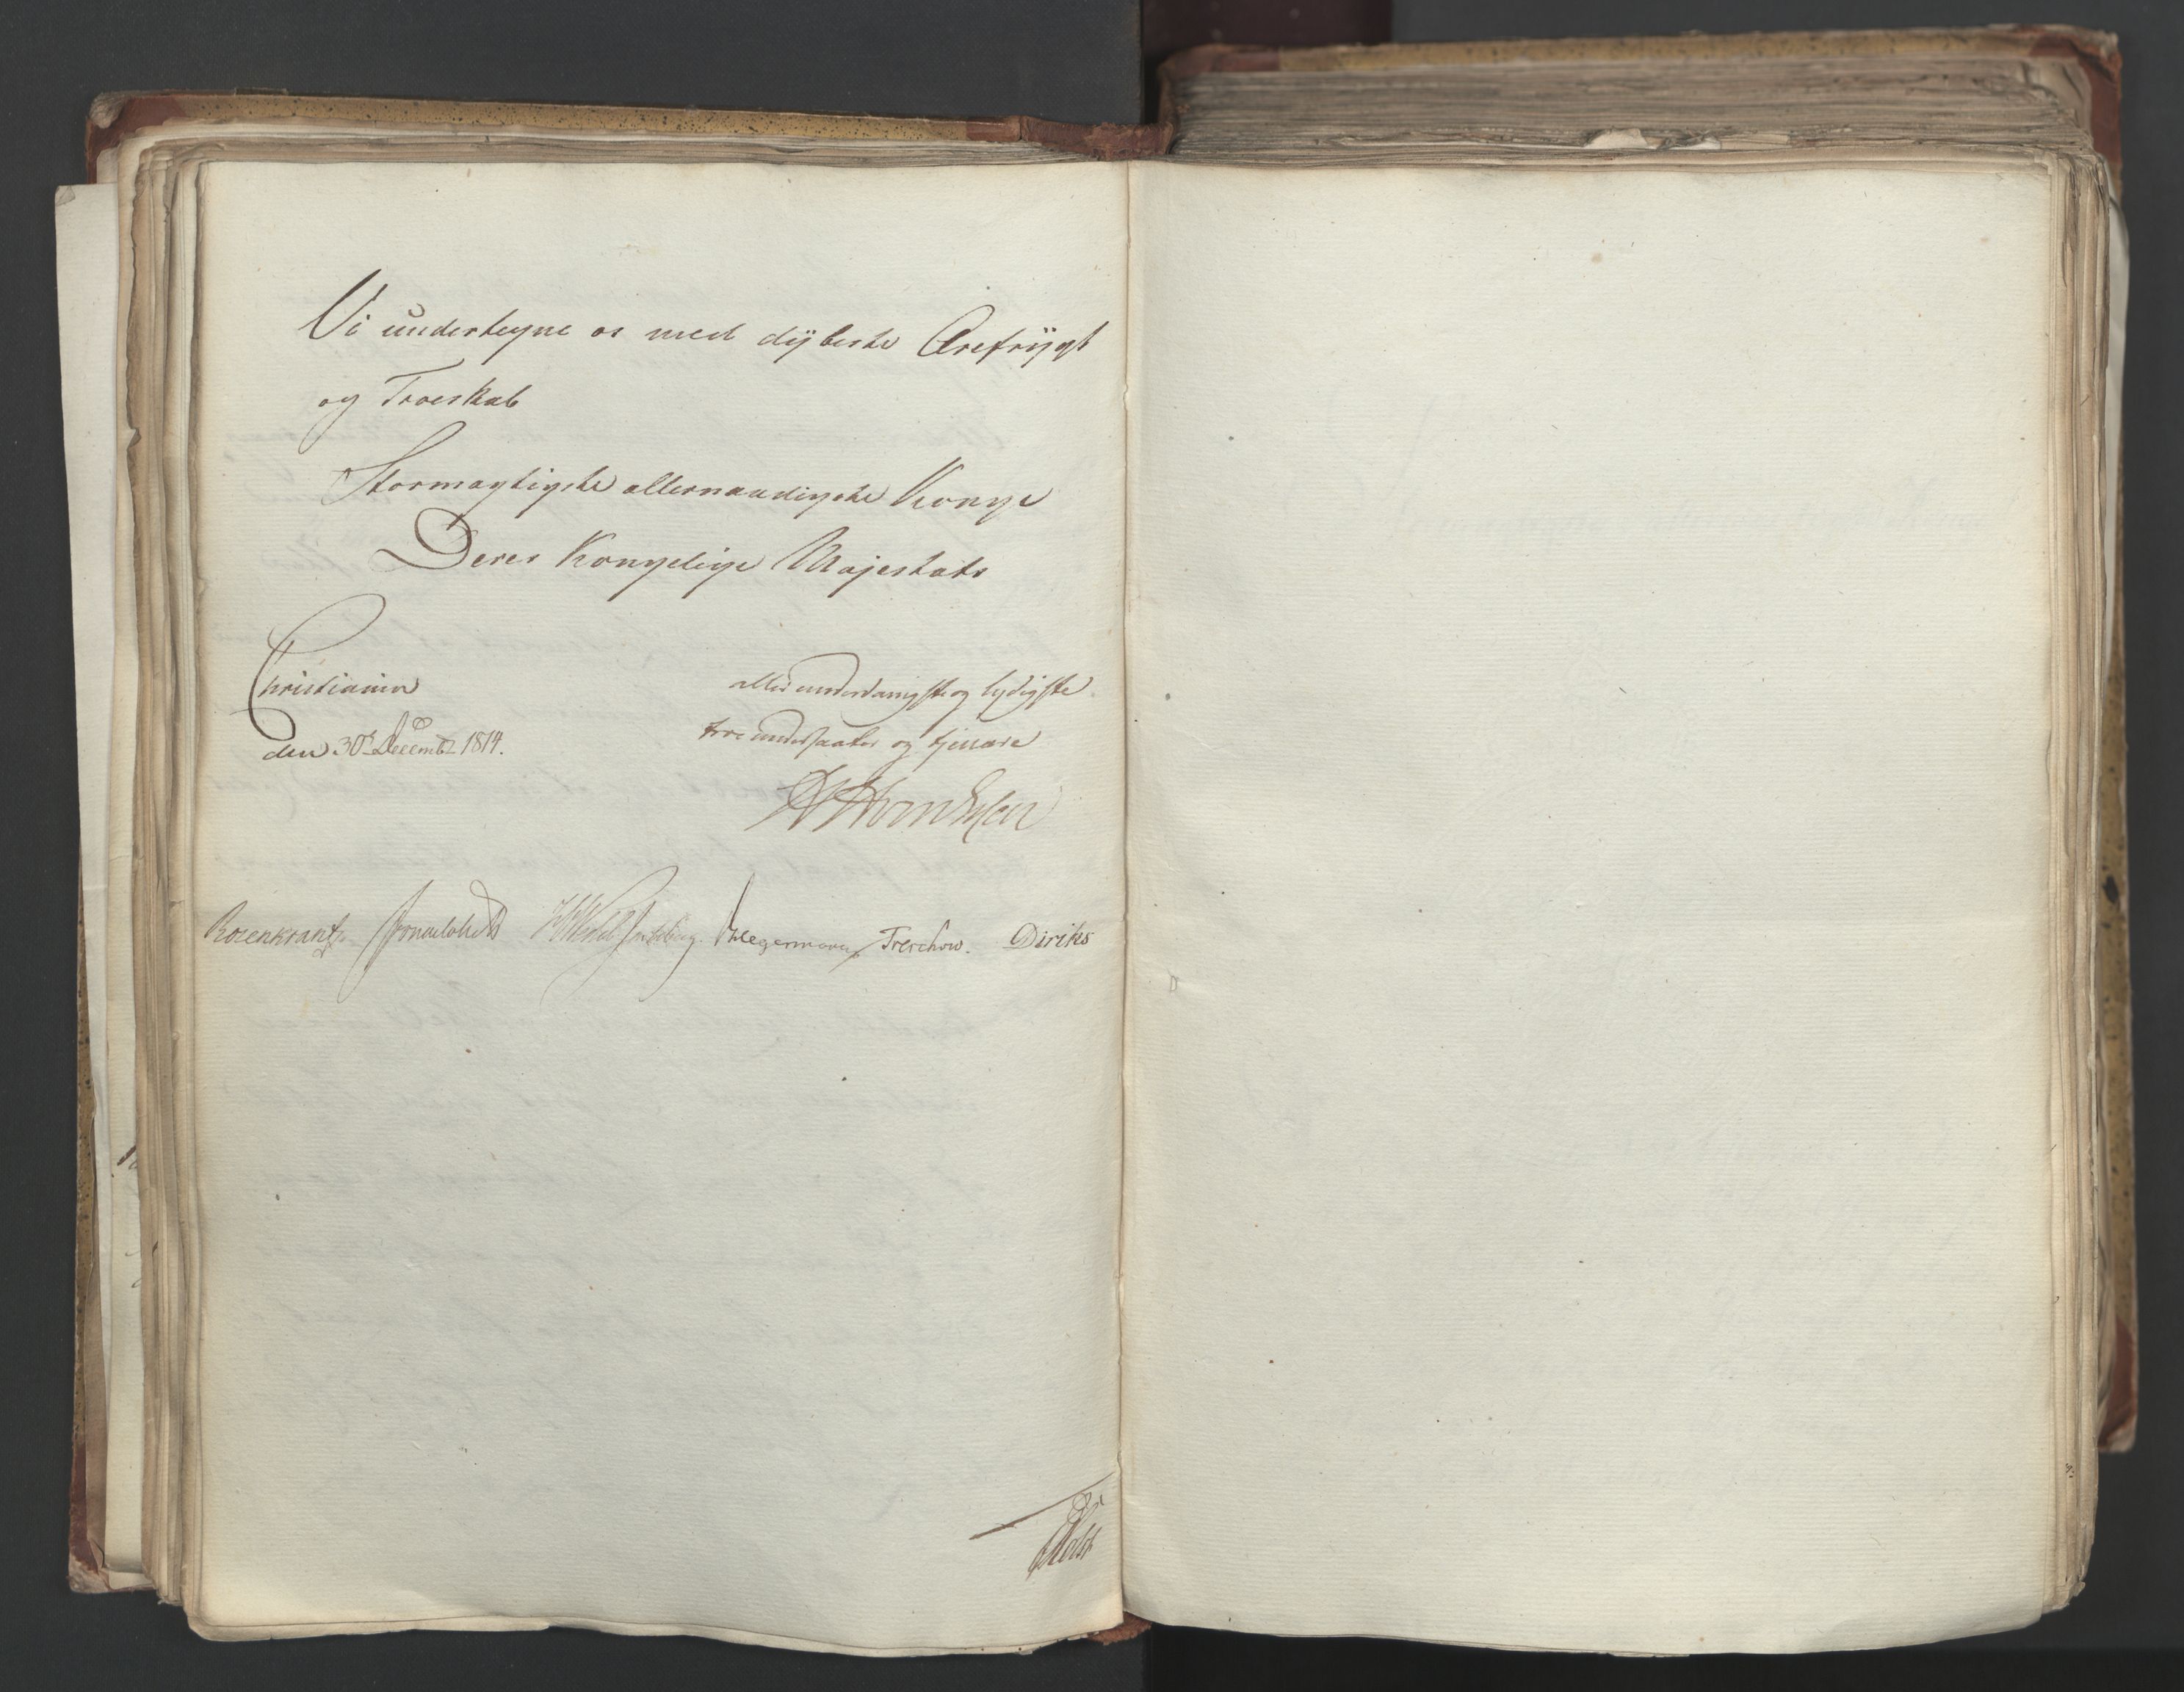 Vi undertegne os med dÿbeste Ærefrÿgt
og Troeskab
Stormægtigste allernaadigste Konge
Deres Kongelige Majestæts
Christiania
den 30te Decembr 1814.
allerunderdanigste og lydigste
troe undersaatter og tjenere
Rosenkrantz Sommerhielm HWedel Jarlsberg Hegermann Treschow. Diriks
Holst